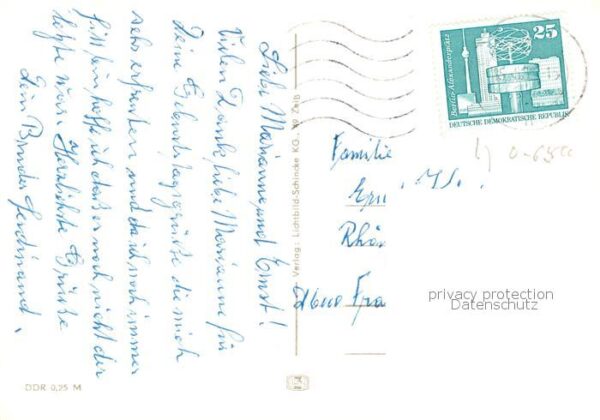 Liebe Marianne und Ernst!
Vielen Dank liebe Marianne für
Deine Geburtstagsgrüße die mich
sehr erfreuten und da ich noch immer
fit bin hoffe ich daß es noch nicht der
letzte war. Herzlichste Grüße
Dein Bruder Ferdinand.
DDR 0,25 M
Verlag: Lichtbild-Schincke KG, 49 Zeitz
25
Berlin, Alexanderplatz
DEUTSCHE DEMOKRATISCHE REPUBLIK
Familie
Rhön
Fra
privacy protection
Datenschutz